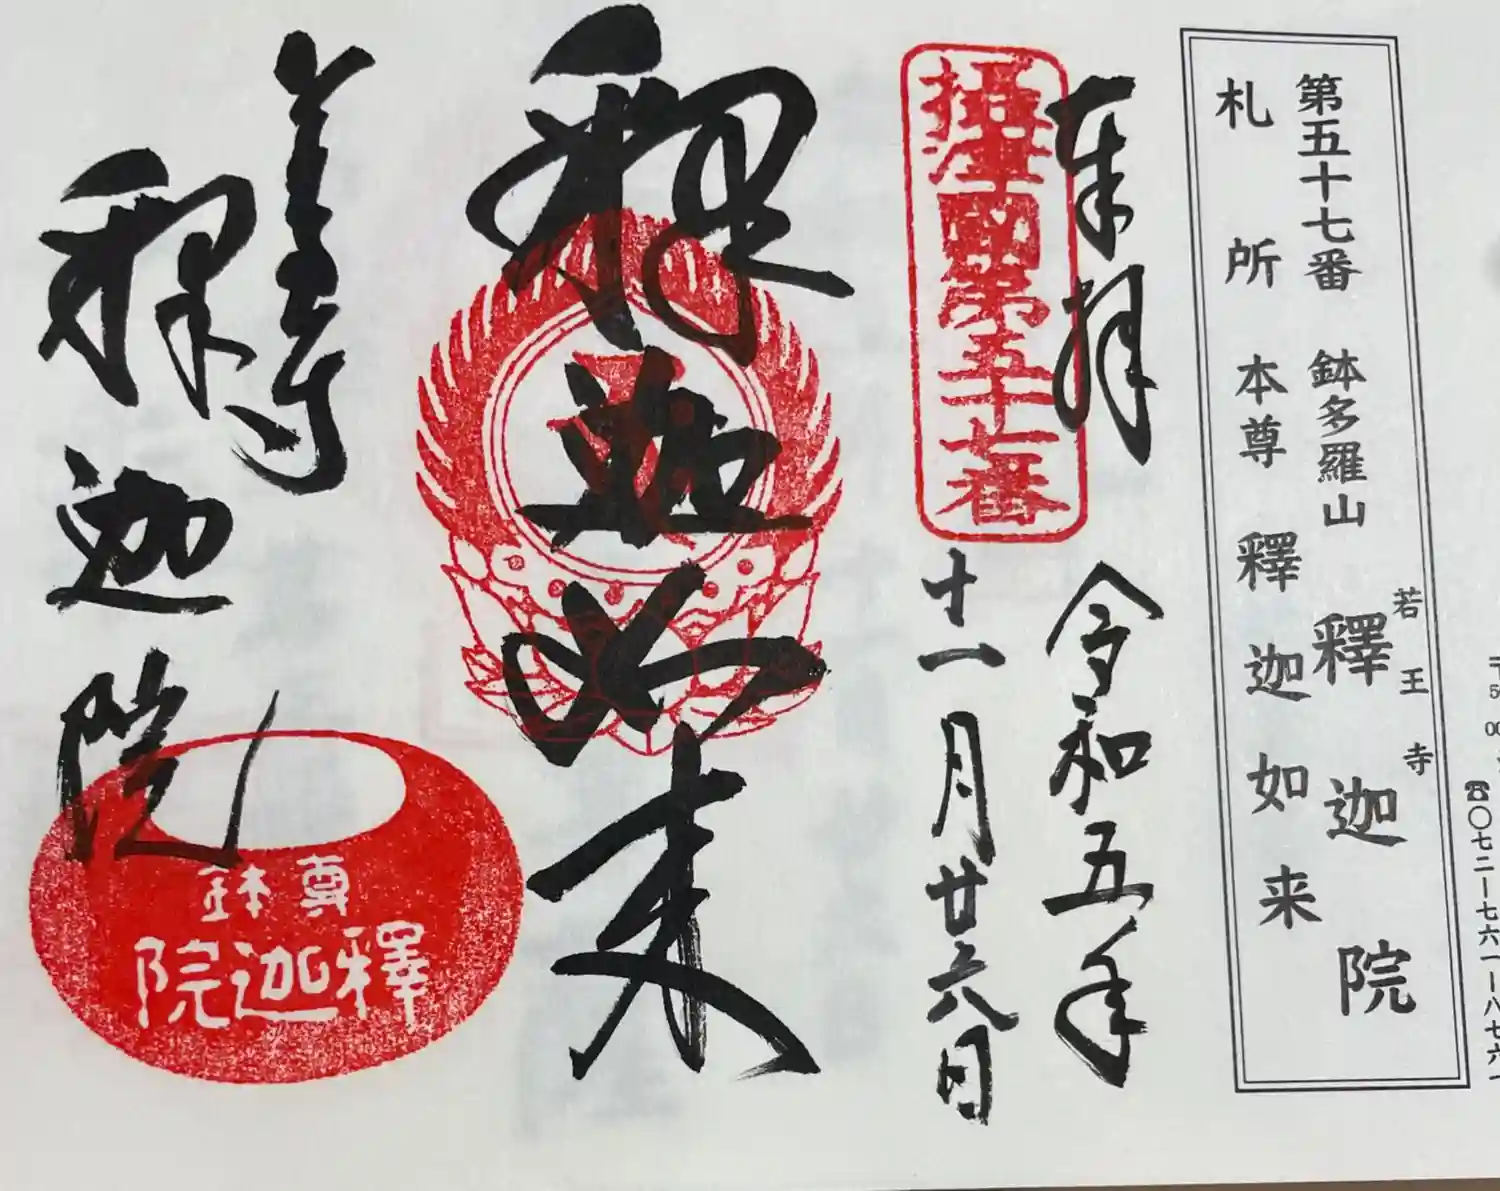 ☎〇七二ー七六一ー八七六一
若王寺
第五十七番 鉢多羅山 釋迦院
札所本尊 釋迦如来
奉拝 令和五年
攝津國第五十七番
十一月廿六日
釋迦如来
若王寺
釋迦院
尊鉢
釋迦院